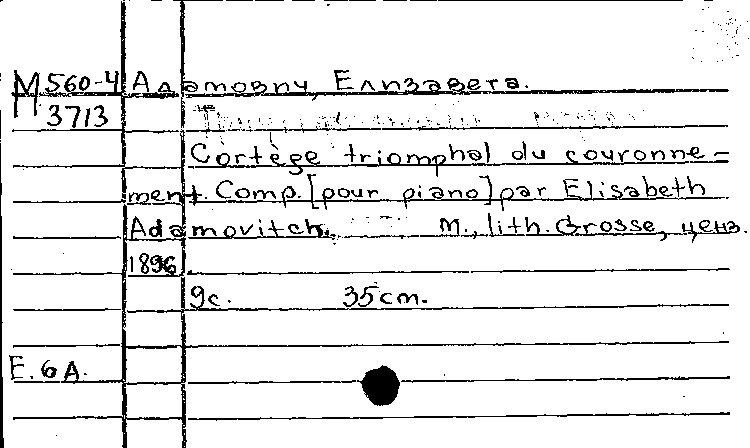 М 560-4 Адамович, Елизавета.
3713
Cortège triomphal du couronne=
ment. Comp. [pour piano] par Elisabeth
Adamovitch. М., lith. Grosse, ценз.
1896.
9с. 35cm.
Е. 6 А.